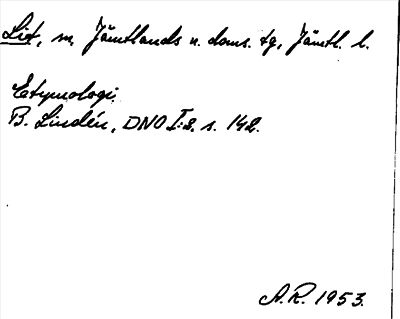 Lit, sn, Jämtlands n. doms. tg, Jämtl. l.
Etymologi.
B. Lindén, DNO I:2. s. 142.
A.R. 1953.